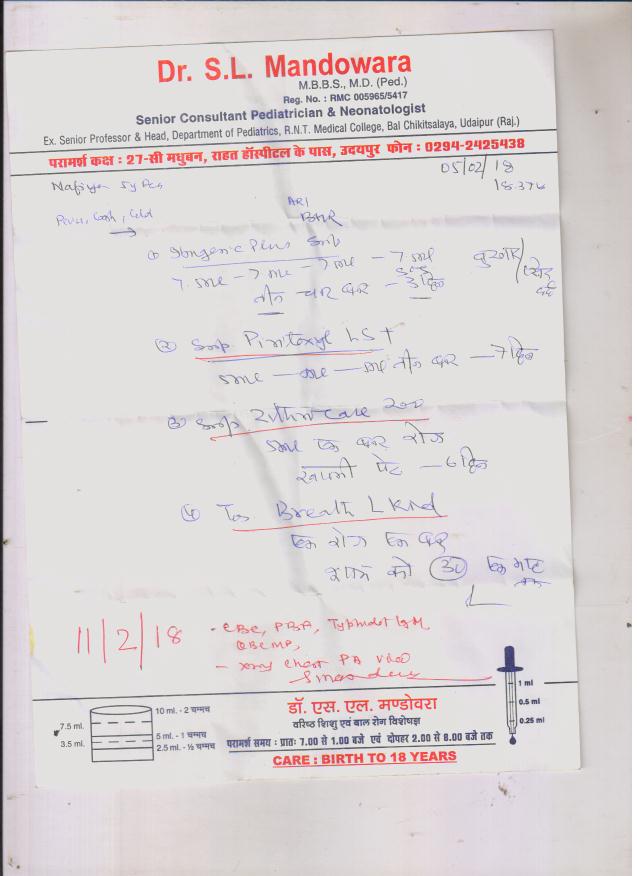 Dr. S.L. Mandowara
M.B.B.S., M.D. (Ped.)
Reg. No. : RMC 005965/5417
Senior Consultant Pediatrician & Neonatologist
Ex. Senior Professor & Head, Department of Pediatrics, R.N.T. Medical College, Bal Chikitsalaya, Udaipur (Raj.)
परामर्श कक्ष : 27-सी मधुबन, राहत हॉस्पीटल के पास, उदयपुर फोन : 0294-2425438
05/02/18
5y
18.37
ARI
Plus Syp
7 ml - 7 ml - 7 ml - 7 ml
बुखार/
तीन चार बार - 3 दिन
दर्द
② Syp. LS+
तीन बार - 7 दिन
③ Syp. Care 200
एक बार रोज
खाली पेट - 6 दिन
④ Breath LKid
एक रोज एक बार
शाम को 30 एक माह तक
11/2/18
- CBC, PBF, Typhidot IgM,
QBC MP,
- Xray Chest PA View
डॉ. एस. एल. मण्डोवरा
वरिष्ठ शिशु एवं बाल रोग विशेषज्ञ
परामर्श समय : प्रातः 7.00 से 1.00 बजे एवं दोपहर 2.00 से 8.00 बजे तक
CARE : BIRTH TO 18 YEARS
10 ml. - 2 चम्मच
7.5 ml.
5 ml. - 1 चम्मच
3.5 ml.
2.5 ml. - ½ चम्मच
1 ml
0.5 ml
0.25 ml